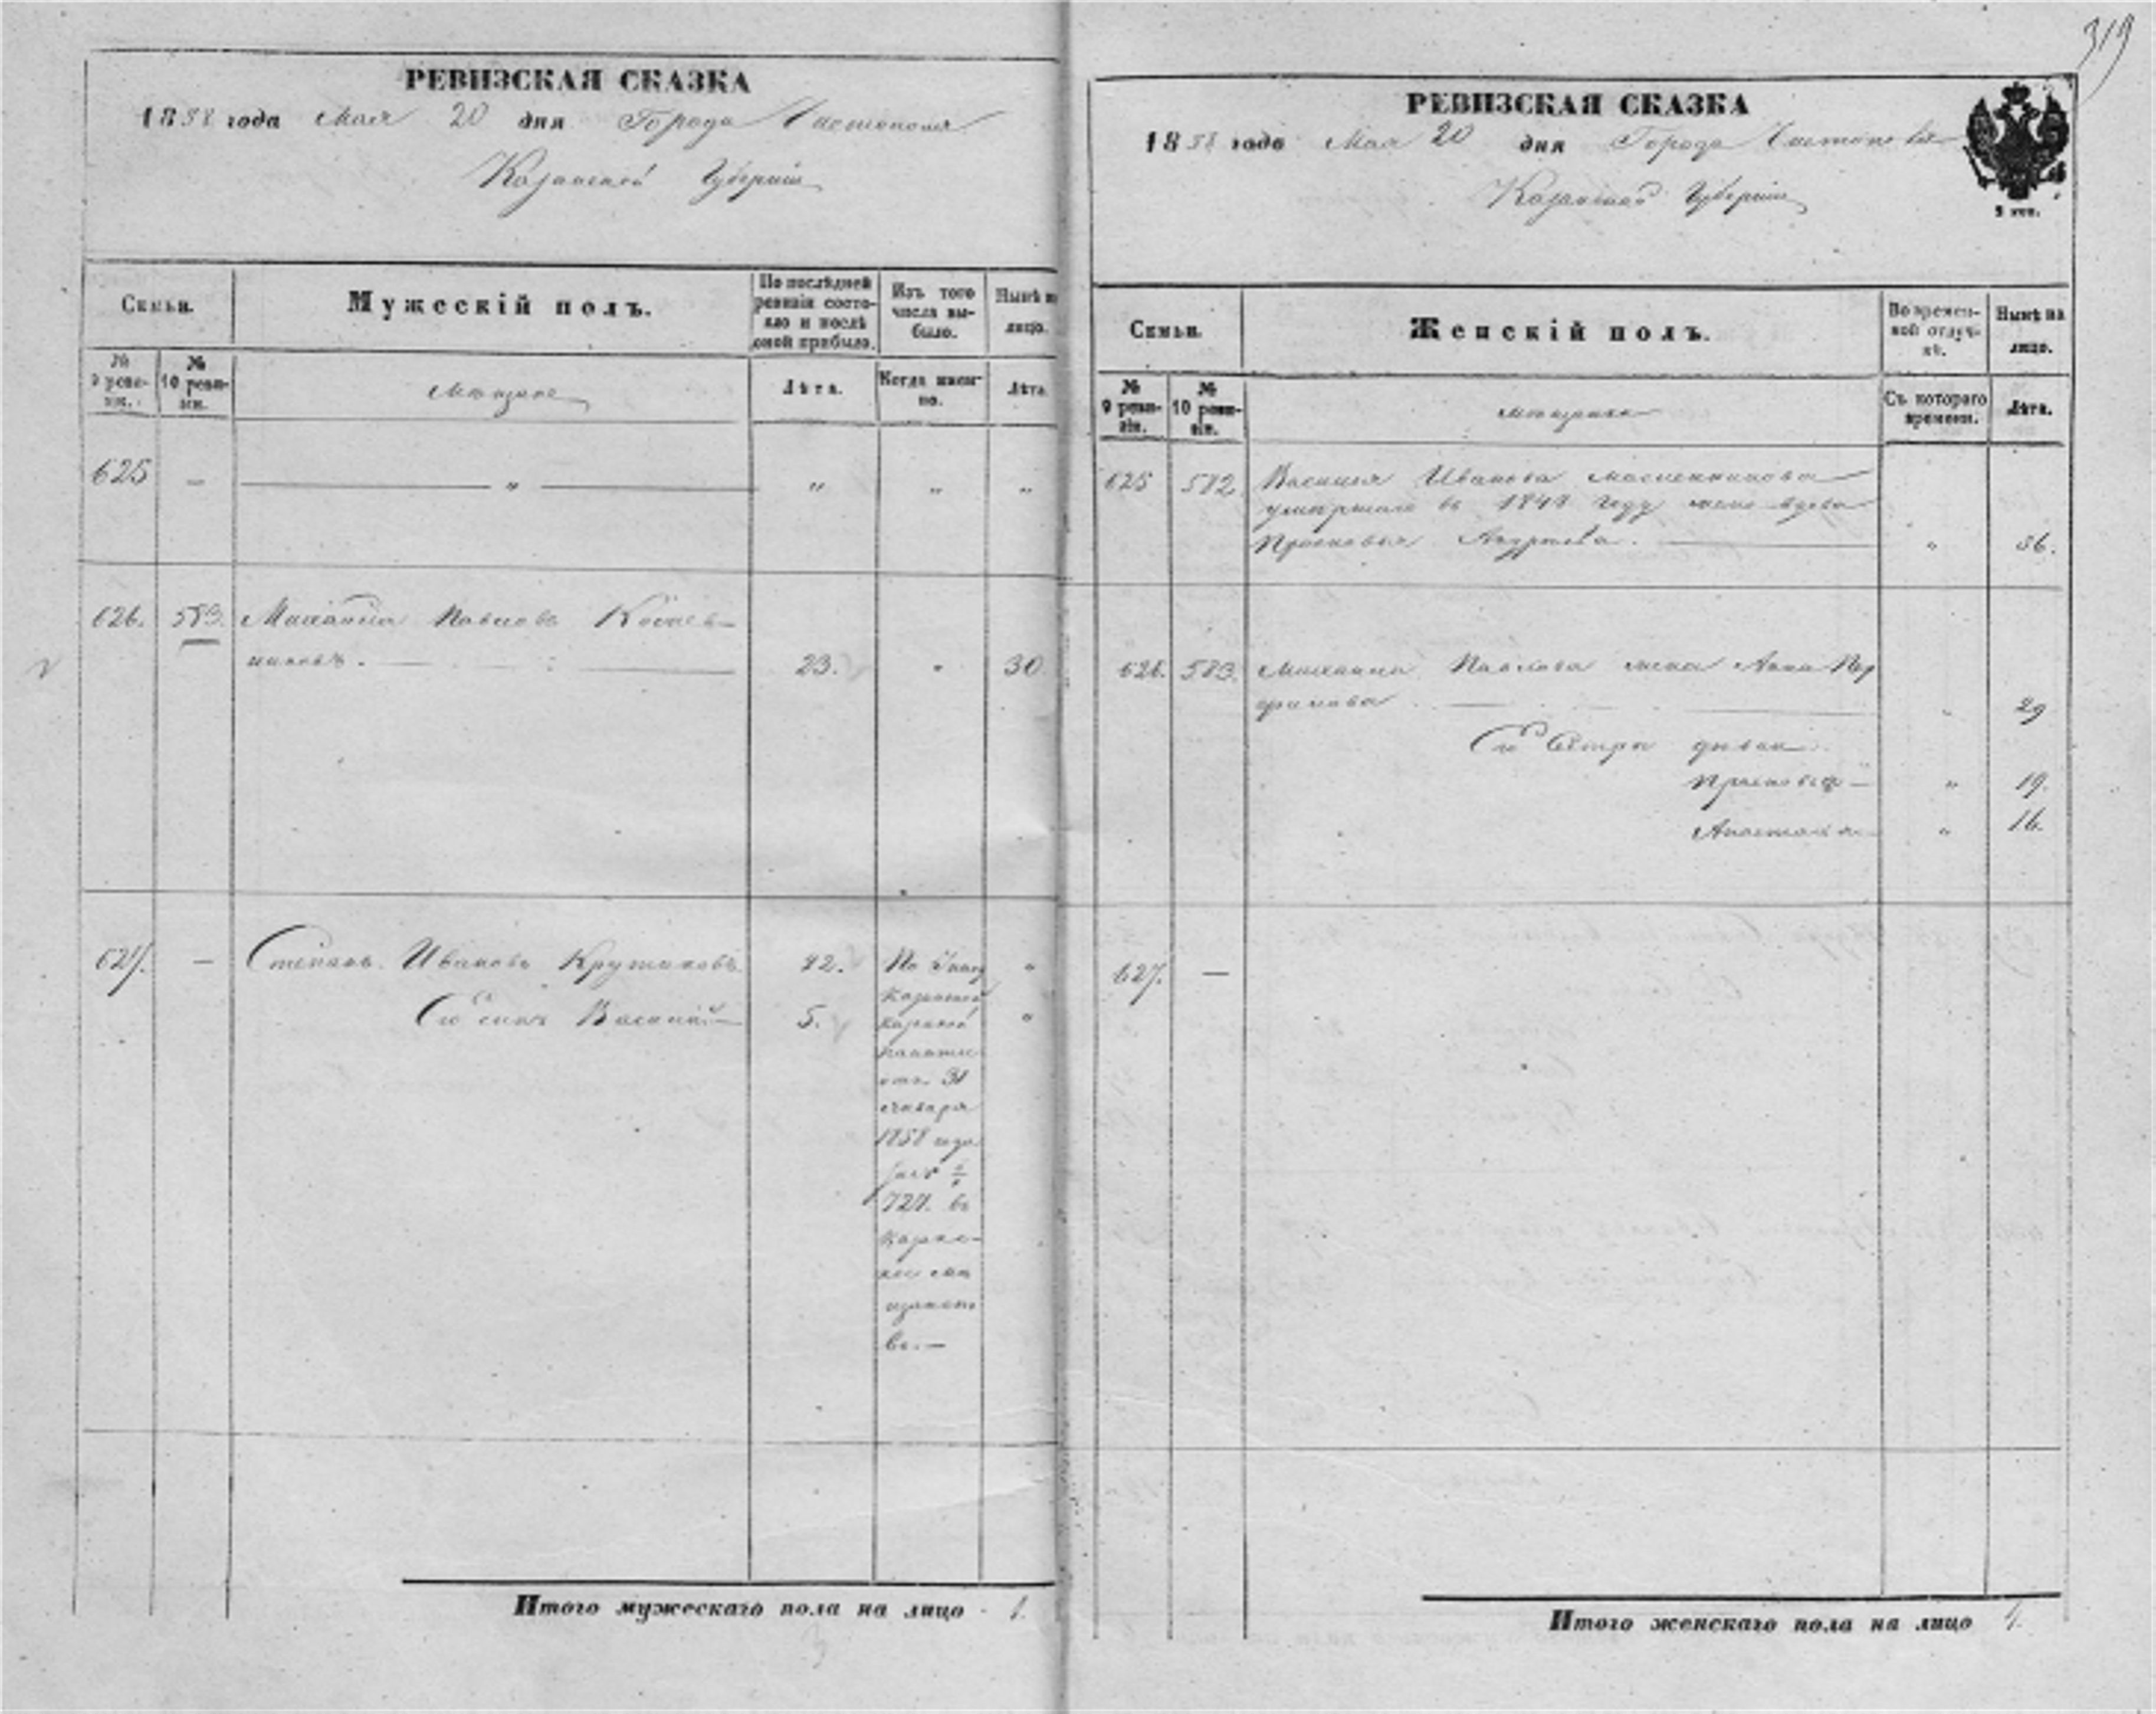 319
РЕВИЗСКАЯ СКАЗКА
1858 года Мая 20 дня Города Чистополя
Казанской Губерніи
Семьи.
Мужескій полъ.
По послѣдней
ревизіи состо-
яло и послѣ
оной прибыло.
Изъ того
числа вы-
было.
Нынѣ на
лицо.
№
9 реви-
зіи.
№
10 реви-
зіи.
Мещане
Лѣта.
Когда имен-
но.
Лѣта.
625 — „ „ „ „
626. 583. Михаила Павловъ
никовъ. 23. „ 30
627. — Степанъ Ивановъ Крутиковъ 42. По „
Казанской
Его сынъ Василій 5. казенной „
палаты
отъ 31
января
1858 года
за №
727. въ
мѣ
щанст
во.—
Итого мужескаго пола на лицо 1.
3
РЕВИЗСКАЯ СКАЗКА
1858 года Мая 20 дня Города Чистополя
Казанской Губерніи
Семьи.
Женскій полъ.
Во времен-
ной отлуч-
кѣ.
Нынѣ на
лицо.
№
9 реви-
зіи.
№
10 реви-
зіи.
мещанки
Съ котораго
времени.
Лѣта.
625 582 Василья Иванова Масленникова
умершаго въ 1848 году жена вдова
Прасковья Андреева. „ 36.
626. 583. Михаила Павлова жена Анна
„ 29
Его Сестры дѣвки
Прасковья „ 19.
Анастасія „ 16.
627. —
Итого женскаго пола на лицо 4.